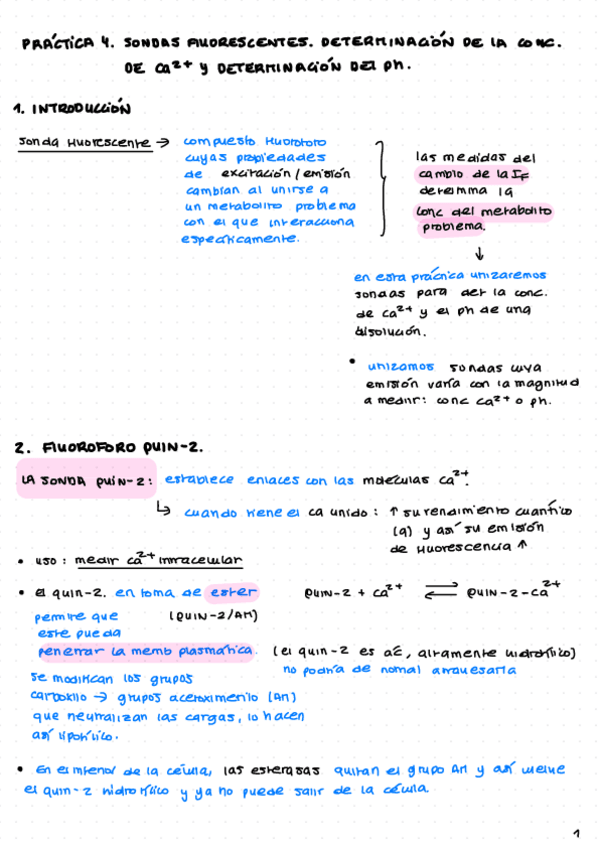 PRÁCTICA 4. SONDAS FLUORESCENTES. DETERMINACIÓN DE LA CONC.
DE Ca2+ Y DETERMINACIÓN DEL PH.
1. INTRODUCCIÓN
Sonda fluorescente →
compuesto fluoroforo
cuyas propiedades
de excitación/emisión
cambian al unirse a
un metabolito problema
con el que interacciona
específicamente.
las medidas del
cambio de la IF
determina la
conc del metabolito
problema.
↓
en esta práctica utilizaremos
sondas para det la conc.
de Ca2+ y el ph de una
disolución.
• utilizamos sondas cuya
emisión varía con la magnitud
a medir: conc Ca2+ o ph.
2. FLUOROFORO QUIN-2.
LA SONDA QUIN-2: establece enlaces con las moléculas Ca2+.
↳ cuando tiene el Ca unido: ↑ su rendimiento cuántico
(q) y así su emisión
de fluorescencia ↑
• USO: medir Ca2+ intracelular
• el quin-2. en forma de ester
(QUIN-2/AM)
permite que
este pueda
penetrar la memb plasmática.
QUIN-2 + Ca2+ ⇌ QUIN-2-Ca2+
(el quin-2 es ác, altamente hidrofílico)
no podría de normal atravesarla
se modifican los grupos
carboxilo → grupos acetoximetilo (AM)
que neutralizan las cargas, lo hacen
así lipofílico.
• En el interior de la célula, las esterasas quitan el grupo AM y así vuelve
el quin-2 hidrofílico y ya no puede salir de la célula.
1